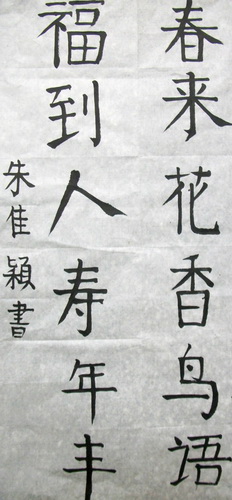 春来花香鸟语
福到人寿年丰
朱佳穎書